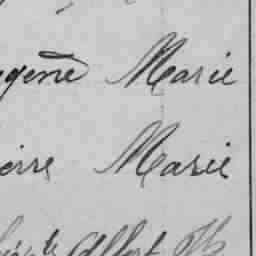 ugène Marie
ierre Marie
Albert